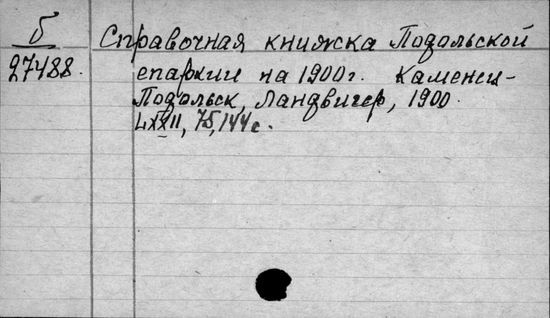 Б
27488.
Справочная книжка Подольской
епархии на 1900г. Каменец-
Подольск, Ландвигер, 1900.
LXXII, 75, 144 с.